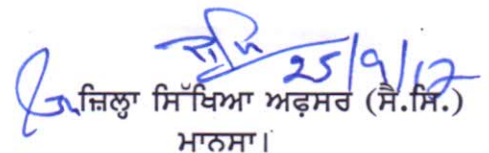 25/9/17
ਜ਼ਿਲ੍ਹਾ ਸਿੱਖਿਆ ਅਫ਼ਸਰ (ਸੈ.ਸਿ.)
ਮਾਨਸਾ।